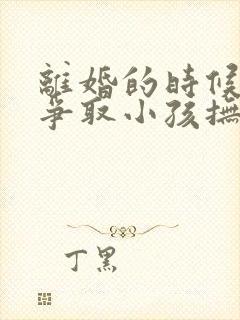 離婚的時候
爭取小孩撫
丁黑